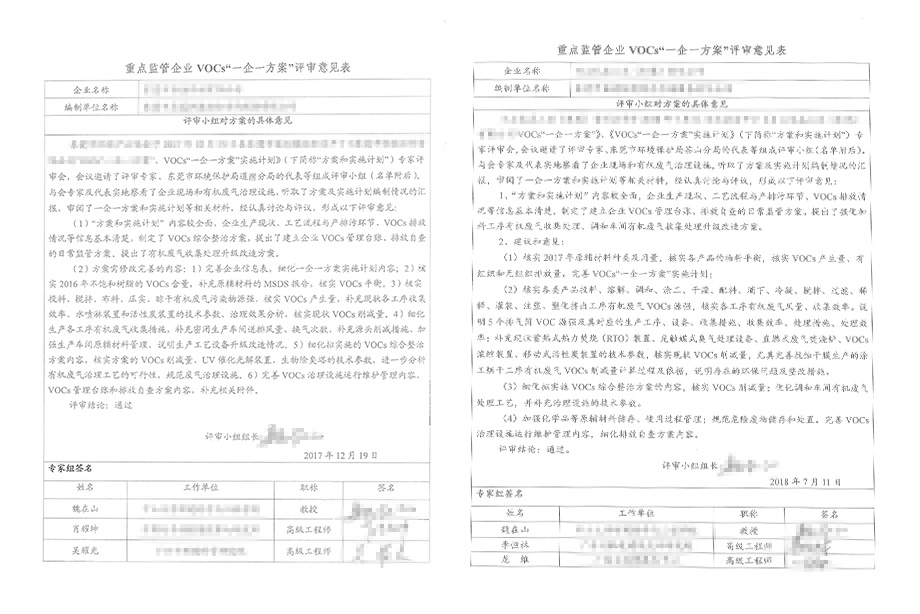 重点监管企业 VOCs“一企一方案”评审意见表
企业名称
编制单位名称
评审小组对方案的具体意见
VOCs“一企一方案”实施计划》(下简称“方案和实施计划”)专家评
审会,会议邀请了评审专家、东莞市环境保护局道滘分局的代表等组成评审小组(名单附后)。
与会专家及代表实地察看了企业现场和有机废气治理设施,听取了方案及实施计划编制情况的汇
报,审阅了一企一方案实施计划等相关材料,经认真讨论与评议,形成以下评审意见:
(1)“方案和实施计划”内容较全面,企业生产现状、工艺流程与产排污环节、VOCs 排放
情况等信息基本清楚,制定了 VOCs 综合整治方案,提出了建立企业 VOCs 管理台账、排放自查
的日常监管方案,提出了有机废气收集处理升级改造方案。
(2)方案需修改完善的内容:1)完善企业信息表,细化一企一方案实施计划内容;2)核
实 2016 年不饱和树脂的 VOCs 含量,补充原辅材料的 MSDS 报告,核实 VOCs 平衡。3)核实
投料、搅拌、布料、压实、晾干有机废气污染物源强,核实 VOCs 产生量,补充现状各工序收集
效率、水喷淋装置和活性炭装置的技术参数、治理效果分析,核实现状 VOCs 削减量。4)细化
生产各工序有机废气收集措施,补充密闭生产车间送排风量、换气次数,补充源头削减措施,加
强生产车间原辅材料管理,说明生产工艺设备升级改造情况。5)细化拟实施的 VOCs 综合整治
方案内容,核实方案的 VOCs 削减量、UV 催化光解装置、生物除臭塔的技术参数,进一步分析
有机废气治理工艺的可行性,规范废气治理设施。6)完善 VOCs 治理设施运行维护管理内容、
VOCs 管理台账和排放自查方案内容,补充相关附件。
评审结论:通过
评审小组组长:
2017 年 12 月 19 日
专家组签名
姓名 工作单位 职称 签名
魏在山 教授
肖耀坤 高级工程师
吴耀光 高级工程师
重点监管企业 VOCs“一企一方案”评审意见表
企业名称
编制单位名称
评审小组对方案的具体意见
VOCs“一企一方案”》、《VOCs“一企一方案”实施计划》(下简称“方案和实施计划”)专
家评审会,会议邀请了评审专家、东莞市环境保护局茶山分局的代表等组成评审小组(名单附后)。
与会专家及代表实地察看了企业现场和有机废气治理设施,听取了方案及实施计划编制情况的汇
报,审阅了一企一方案实施计划等相关材料,经认真讨论与评议,形成以下评审意见:
1、“方案和实施计划”内容较全面,企业生产现状、工艺流程与产排污环节、VOCs 排放情
况等信息基本清楚,制定了建立企业 VOCs 管理台账、排放自查的日常监管方案,提出了强化加
料工序有机废气收集处理、调和车间有机废气收集处理升级改造方案。
2、建议和意见:
(1)核实 2017 年原辅材料种类及用量,核实各产品的物料平衡,核实 VOCs 产生量、有
组织和无组织排放量。完善 VOCs“一企一方案”实施计划;
(2)核实各类产品投料、溶解、调和、涂工、干燥、配料、滴下、冷凝、搅拌、过滤、稀
释、灌装、注塑、塑化挤出工序有机废气 VOCs 源强,核实各工序有机废气风量、收集效率。说
明 5 个排气筒 VOC 源强及其对应的生产工序、设备、收集措施、收集效率、处理措施、处理效
率;补充现注蓄热式热力焚烧(RTO)装置、光触媒式臭气处理设备、直燃式废气焚烧炉、VOCs
浓缩装置、移动式活性炭装置的技术参数,核实现状 VOCs 削减量,尤其完善抗蚀干膜生产的涂
工烘干工序有机废气 VOCs 削减量计算过程及依据,说明存在的环保问题及整改措施。
(3)细化拟实施 VOCs 综合整治方案的内容,核实 VOCs 削减量;优化调和车间有机废气
处理工艺,并补充治理设施的技术参数。
(4)加强化学品等原辅材料储存、使用过程管理;规范危险废物储存和处置。完善 VOCs
治理设施运行维护管理内容,细化排放自查方案内容。
评审结论:通过。
评审小组组长:
2018 年 7 月 11 日
专家组签名
姓名 工作单位 职称 签名
魏在山 教授
李恒林 高级工程师
龙 雄 高级工程师